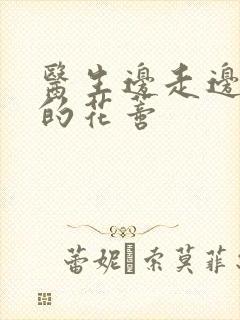 醫生邊走邊
的花蕾
蕾妮 索莫菲